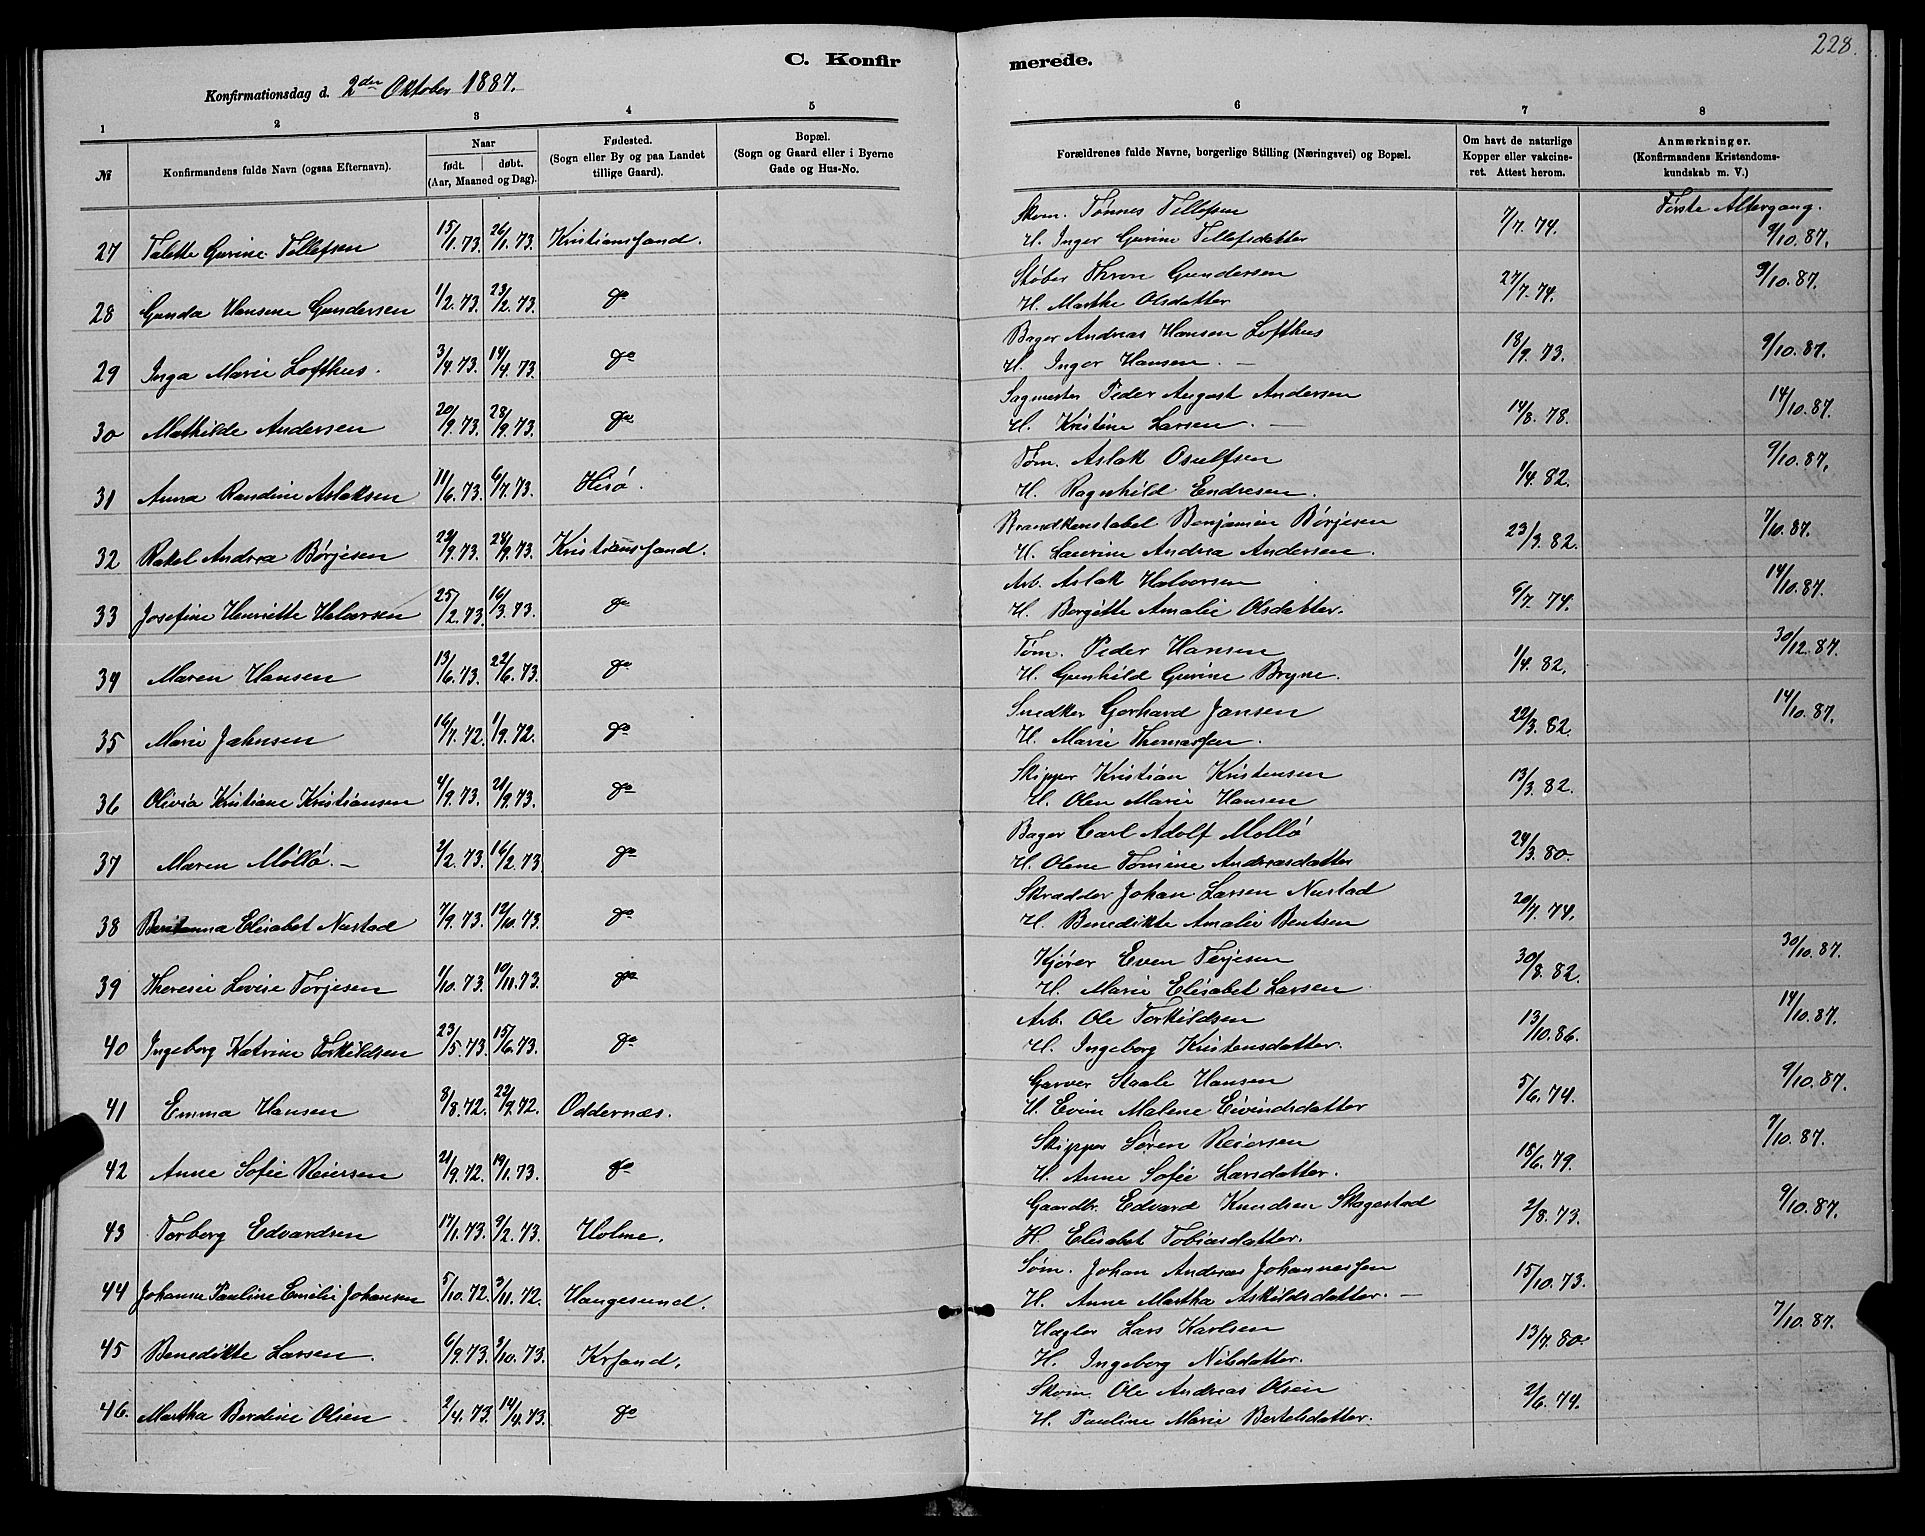 228.
C. Konfirmerede.
Konfirmationsdag d. 2den Oktober 1887.
1 2 3 4 5 6 7 8
№ Konfirmandens fulde Navn (ogsaa Efternavn). Naar født. døbt. (Aar, Maaned og Dag). Fødested. (Sogn eller By og paa Landet tillige Gaard). Bopæl. (Sogn og Gaard eller i Byerne Gade og Hus-No. Forældrenes fulde Navne, borgerlige Stilling (Næringsvei) og Bopæl. Om havt de naturlige Kopper eller vakcineret. Attest herom. Anmærkninger. (Konfirmandens Kristendomskundskab m. V.)
Første Altergang.
27 Talette Gurine Tellefsen 15/1.73. 26/1.73. Kristianssand. Skom. Tønnes Tellefsen 7/7.74. 9/10.87.
H. Inger Gurine Tellefsdatter
28 Gunda Hansine Gundersen 1/2.73. 23/2.73. do Støber Thron Gundersen 27/7.74. 9/10.87.
H. Marthe Olsdatter
29 Inga Marie Lofthus. 3/4.73. 14/4.73. do Bager Andreas Hansen Lofthus 18/9.73. 9/10.87.
H. Inger Hansen. —
30 Mathilde Andersen 20/9.73. 28/9.73. do Sagmester Peder August Andersen 14/8.78. 14/10.87.
H. Kristine Larsen. —
31 Anna Randine Aslaksen 11/6.73. 6/7.73. Hisø. Tøm. Aslak Osulfsen 1/4.82. 9/10.87.
H. Ragnhild Endresen.
32 Rakel Andrea Børjesen 24/9.73. 28/9.73. Kristianssand. Brandkonstabel Benjamin Børjesen 23/3.82. 7/10.87.
H. Laurine Andrea Andersen.
33 Josefine Henriette Halvorsen 25/2.73. 16/3.73. do Arb. Aslak Halvorsen 6/7.74. 14/10.87.
H. Bergitte Amalie Olsdatter.
34 Maren Hansen 13/6.73. 22/6.73. do Tøm. Peder Hansen 1/4.82. 30/12.87.
H. Gunhild Gurine Bryne.
35 Marie Jahnsen 16/7.72. 1/9.72. do Snedker Gerhard Jansen 22/3.82. 14/10.87.
H. Marie Thomassen.
36 Olivia Kristiane Kristiansen 4/9.73. 21/9.73. do Skipper Kristian Kristensen 13/3.82.
H. Olen Marie Hansen
37 Maren Møllø. — 2/2.73. 16/2.73 do Bager Carl Adolf Mollø 24/3.80.
H. Olene Tomine Andreasdatter
38 Elisabet Nustad 7/9.73. 12/10.73. do Skrædder Johan Larsen Nustad 20/7.74.
H. Benedikte Amalie Bentsen
39 Theresie Lovise Terjesen 1/10.73. 10/11.73. do Kjører Even Terjesen 30/8.82. 30/10.87.
H. Marie Elisabet Larsen
40 Ingeborg Katrine Torkildsen 23/5.73. 15/6.73. do Arb. Ole Torkildsen 13/10.86. 14/10.87.
H. Ingeborg Kristensdatter.
41 Emma Hansen 8/8.72. 22/9.72. Oddernæs. Garver Staale Hansen 5/6.74. 9/10.87.
H. Evine Malene Eivindsdatter
42 Anne Sofie Reiersen 21/9.72. 19/1.73. do Skipper Søren Reiersen 18/6.79. 7/10.87.
H. Anne Sofie Larsdatter.
43 Torborg Edvardsen 17/1.73. 9/2.73. Holme. Gaardbr. Edvard Knudsen Skagestad 2/8.73. 9/10.87.
H. Elisabet Tobiasdatter.
44 Johanne Pauline Emilie Johansen 5/10.72. 3/11.72. Haugesund. Søm. Johan Andreas Johannessen 15/10.73.
H. Anne Martha Askildsdatter. —
45 Benedikte Larsen. 6/9.73. 3/10.73. Krsand. Hægler Lars Karlsen 13/7.80. 7/10.87.
H. Ingeborg Nilsdatter.
46. Martha Berdine Olsen 2/4.73. 14/4.73. do Skom. Ole Andreas Olsen 2/6.74.
H. Pauline Marie Bertelsdatter.